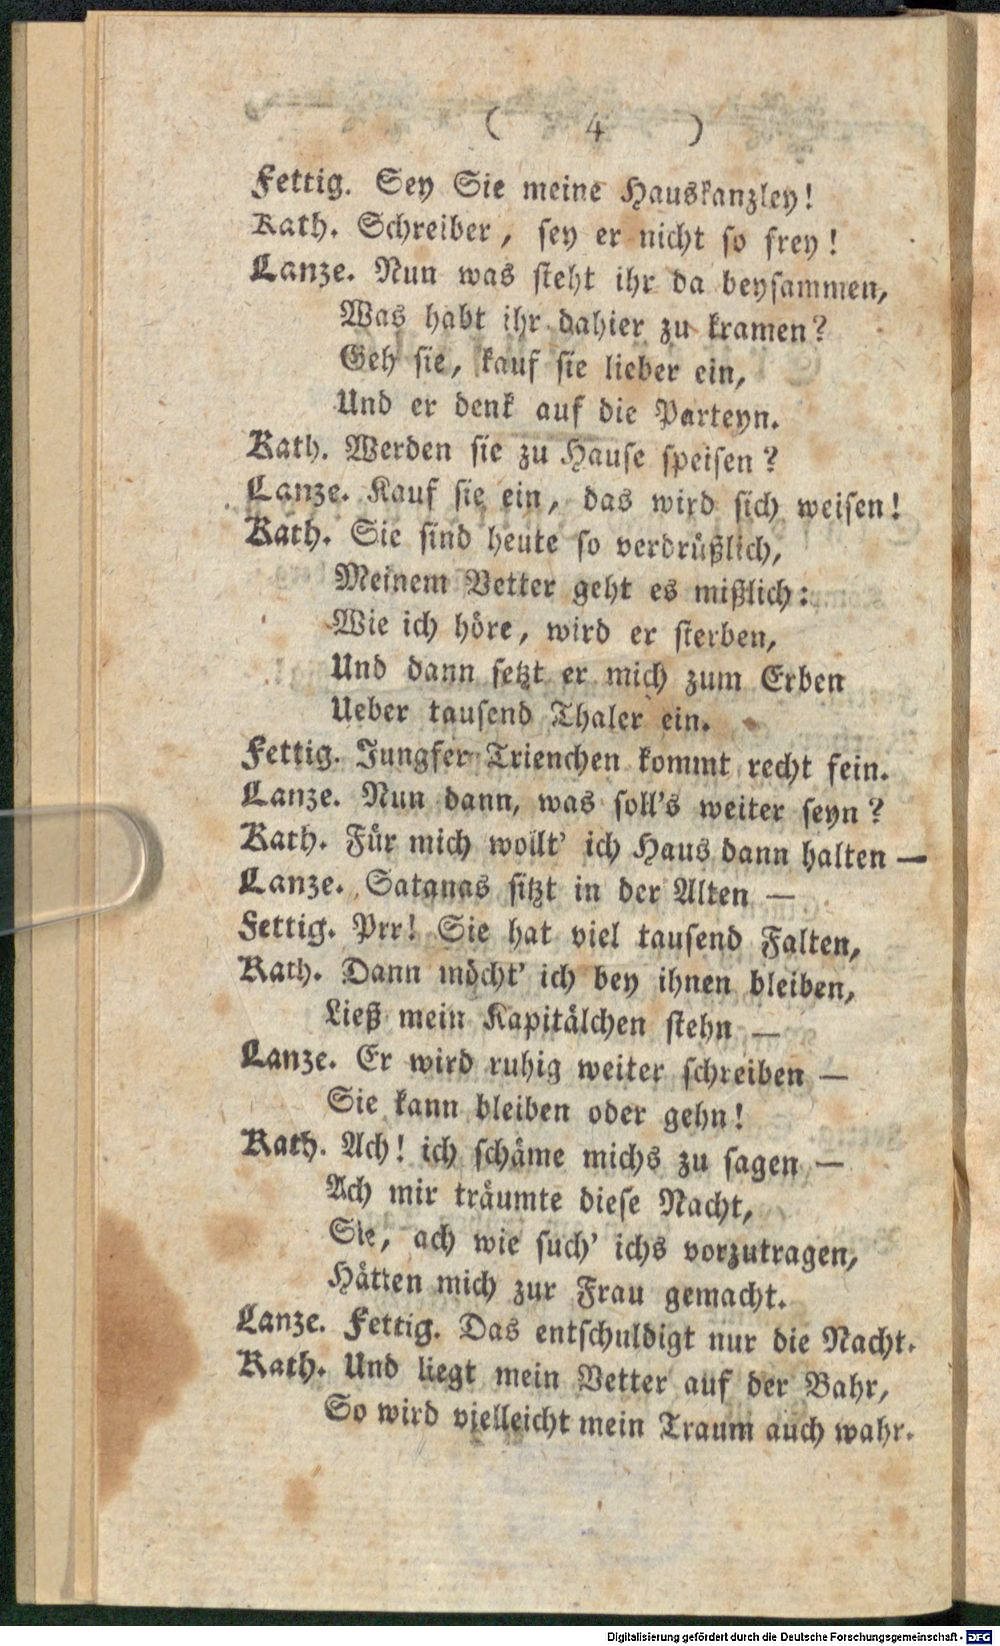 ( 4 )
Fettig. Sey Sie meine Hauskanzley!
Kath. Schreiber, sey er nicht so frey!
Lanze. Nun was steht ihr da beysammen,
Was habt ihr dahier zu kramen?
Geh sie, kauf sie lieber ein,
Und er denk auf die Parteyn.
Kath. Werden sie zu Hause speisen?
Lanze. Kauf sie ein, das wird sich weisen!
Kath. Sie sind heute so verdrüßlich,
Meinem Vetter geht es mißlich:
Wie ich höre, wird er sterben,
Und dann setzt er mich zum Erben
Ueber tausend Thaler ein.
Fettig. Jungfer Trienchen kommt recht fein.
Lanze. Nun dann, was soll's weiter seyn?
Kath. Für mich wollt' ich Haus dann halten —
Lanze. Satanas sitzt in der Alten —
Fettig. Prr! Sie hat viel tausend Falten,
Kath. Dann möcht' ich bey ihnen bleiben,
Ließ mein Kapitälchen stehn —
Lanze. Er wird ruhig weiter schreiben —
Sie kann bleiben oder gehn!
Kath. Ach! ich schäme michs zu sagen —
Ach mir träumte diese Nacht,
Sie, ach wie such' ichs vorzutragen,
Hätten mich zur Frau gemacht.
Lanze. Fettig. Das entschuldigt nur die Nacht.
Kath. Und liegt mein Vetter auf der Bahr,
So wird vielleicht mein Traum auch wahr.
Digitalisierung gefördert durch die Deutsche Forschungsgemeinschaft - DFG